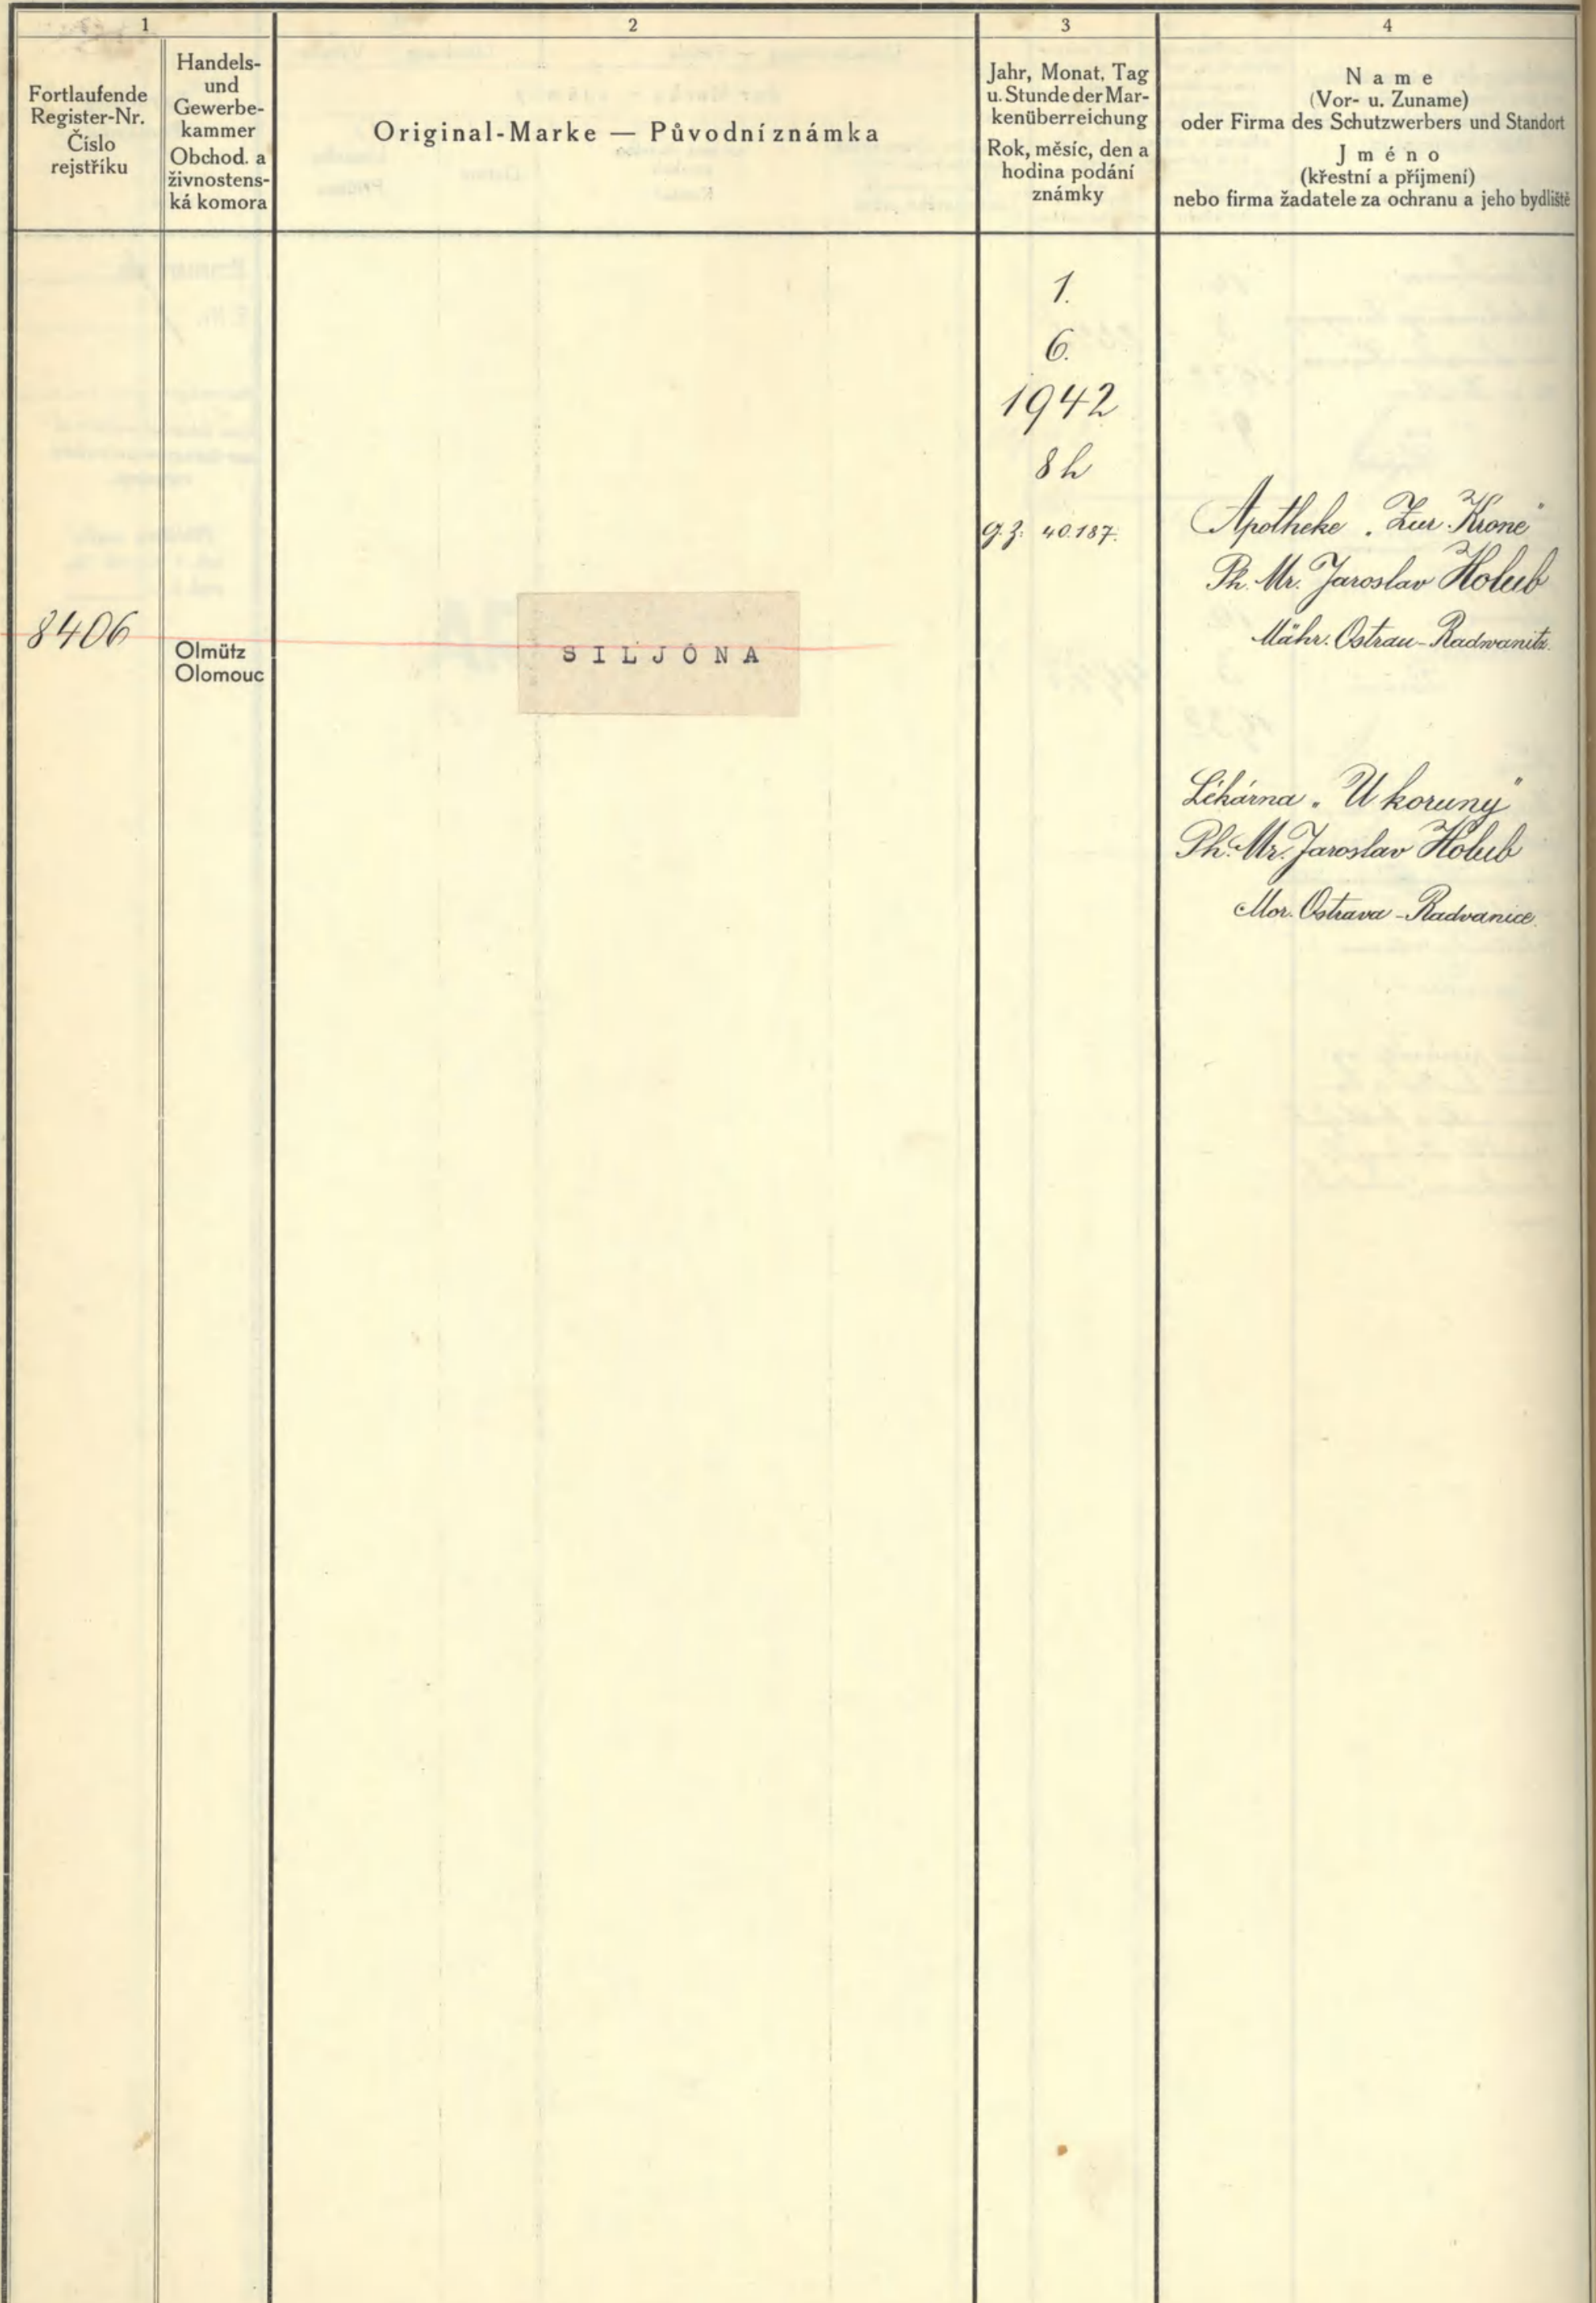 1
Fortlaufende
Register-Nr.
Číslo
rejstříku
Handels-
und
Gewerbe-
kammer
Obchod. a
živnostens-
ká komora
2
Original-Marke — Původní známka
3
Jahr, Monat, Tag
u. Stunde der Mar-
kenüberreichung
Rok, měsíc, den a
hodina podání
známky
4
Name
(Vor- u. Zuname)
oder Firma des Schutzwerbers und Standort
Jméno
(křestní a příjmení)
nebo firma žadatele za ochranu a jeho bydliště
8406
Olmütz
Olomouc
SILJONA
1.
6.
1942
8 h
g.z. 40.187.
Apotheke „Zur Krone"
Ph. Mr. Jaroslav Holub
Mähr. Ostrau-Radwanitz.
Lékárna „U koruny"
Ph. Mr. Jaroslav Holub
Mor. Ostrava-Radvanice.